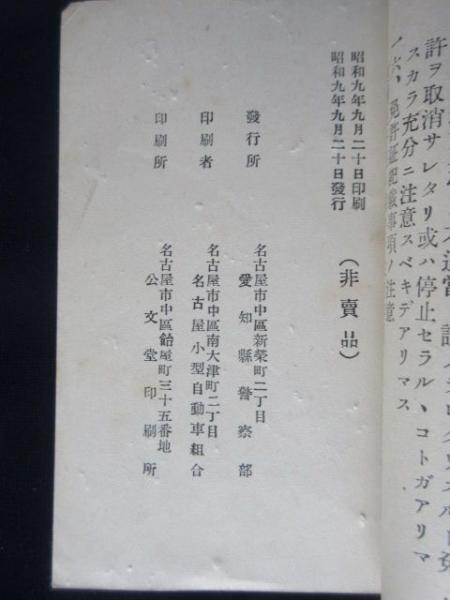 許ヲ取消サレタリ或ハ停止セラルヽコトガアリマ
スカラ充分ニ注意スベキデアリマス
六、免許証記載事項ノ注意
昭和九年九月二十日印刷
昭和九年九月二十日發行
(非賣品)
發行所
名古屋市中區新榮町二丁目
愛知縣警察部
印刷者
名古屋市中區南大津町二丁目
名古屋小型自動車組合
印刷所
名古屋市中區飴屋町三十五番地
公文堂印刷所